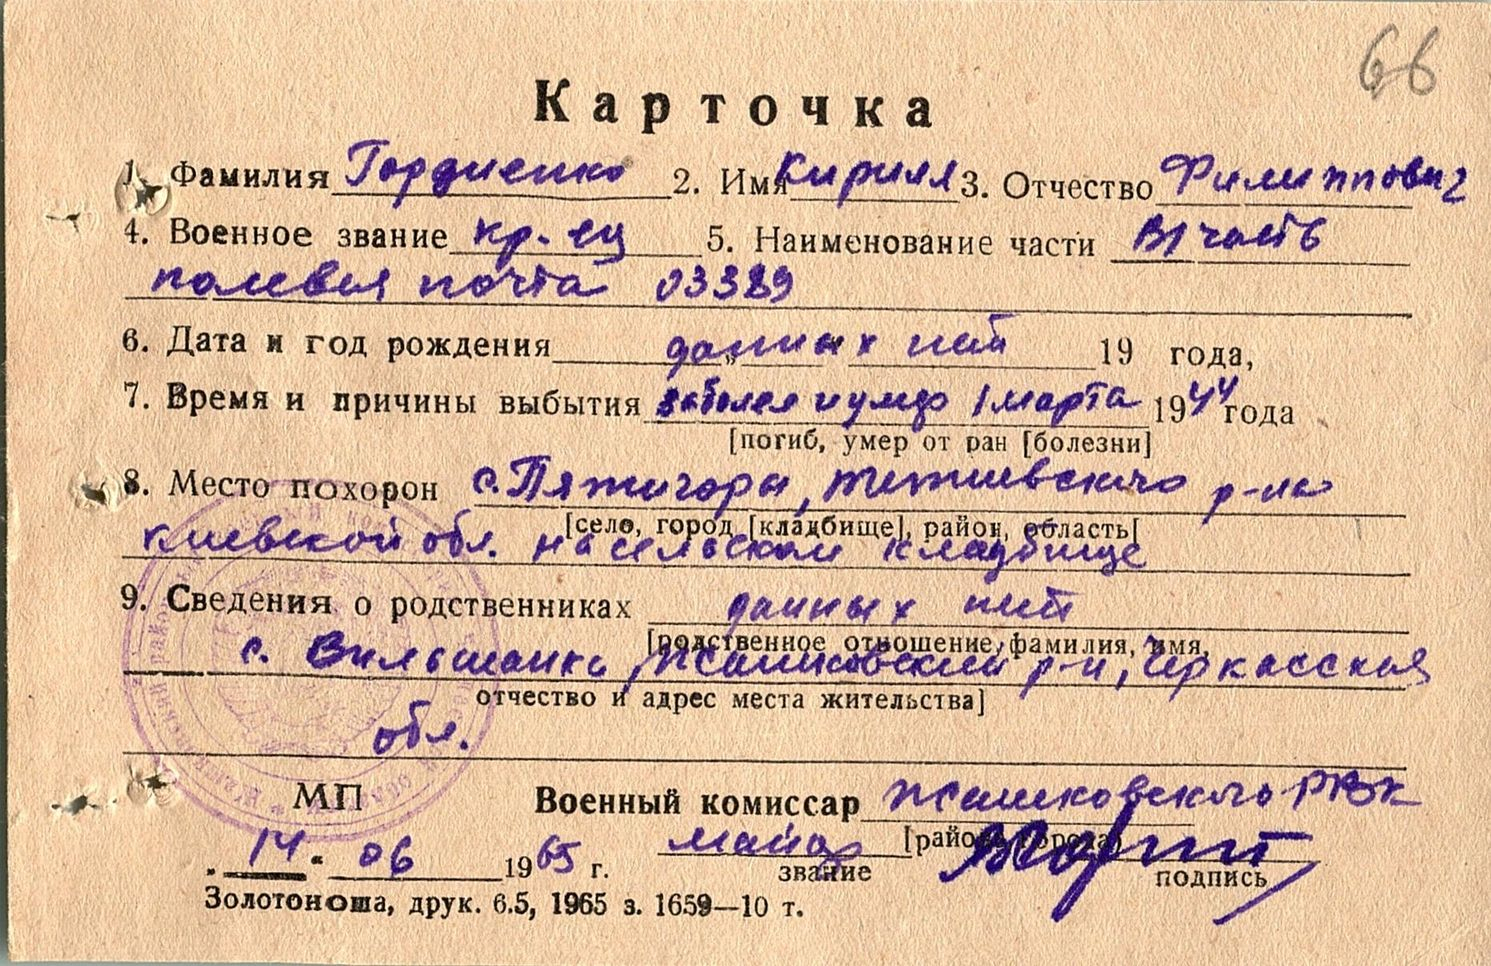 66
Карточка
1. Фамилия Гордиенко 2. Имя Кирилл 3. Отчество Филиппович
4. Военное звание кр-ец 5. Наименование части В/часть
полевая почта 03389
6. Дата и год рождения данных нет 19 года,
7. Время и причины выбытия заболел и умер 1 марта 1944 года
[погиб, умер от ран [болезни]
8. Место похорон с. Пятигоры, Тетиевского р-на
[село, город [кладбище], район, область[
Киевской обл. на сельском кладбище
9. Сведения о родственниках данных нет
[родственное отношение, фамилия, имя,
с. Вильшанка, Жашковский р-н, Черкасская
отчество и адрес места жительства]
обл.
МП Военный комиссар Жашковского РВК
майор [района, города)
14. 06 1965 г. звание подпись
Золотоноша, друк. 6.5, 1965 з. 1659—10 т.